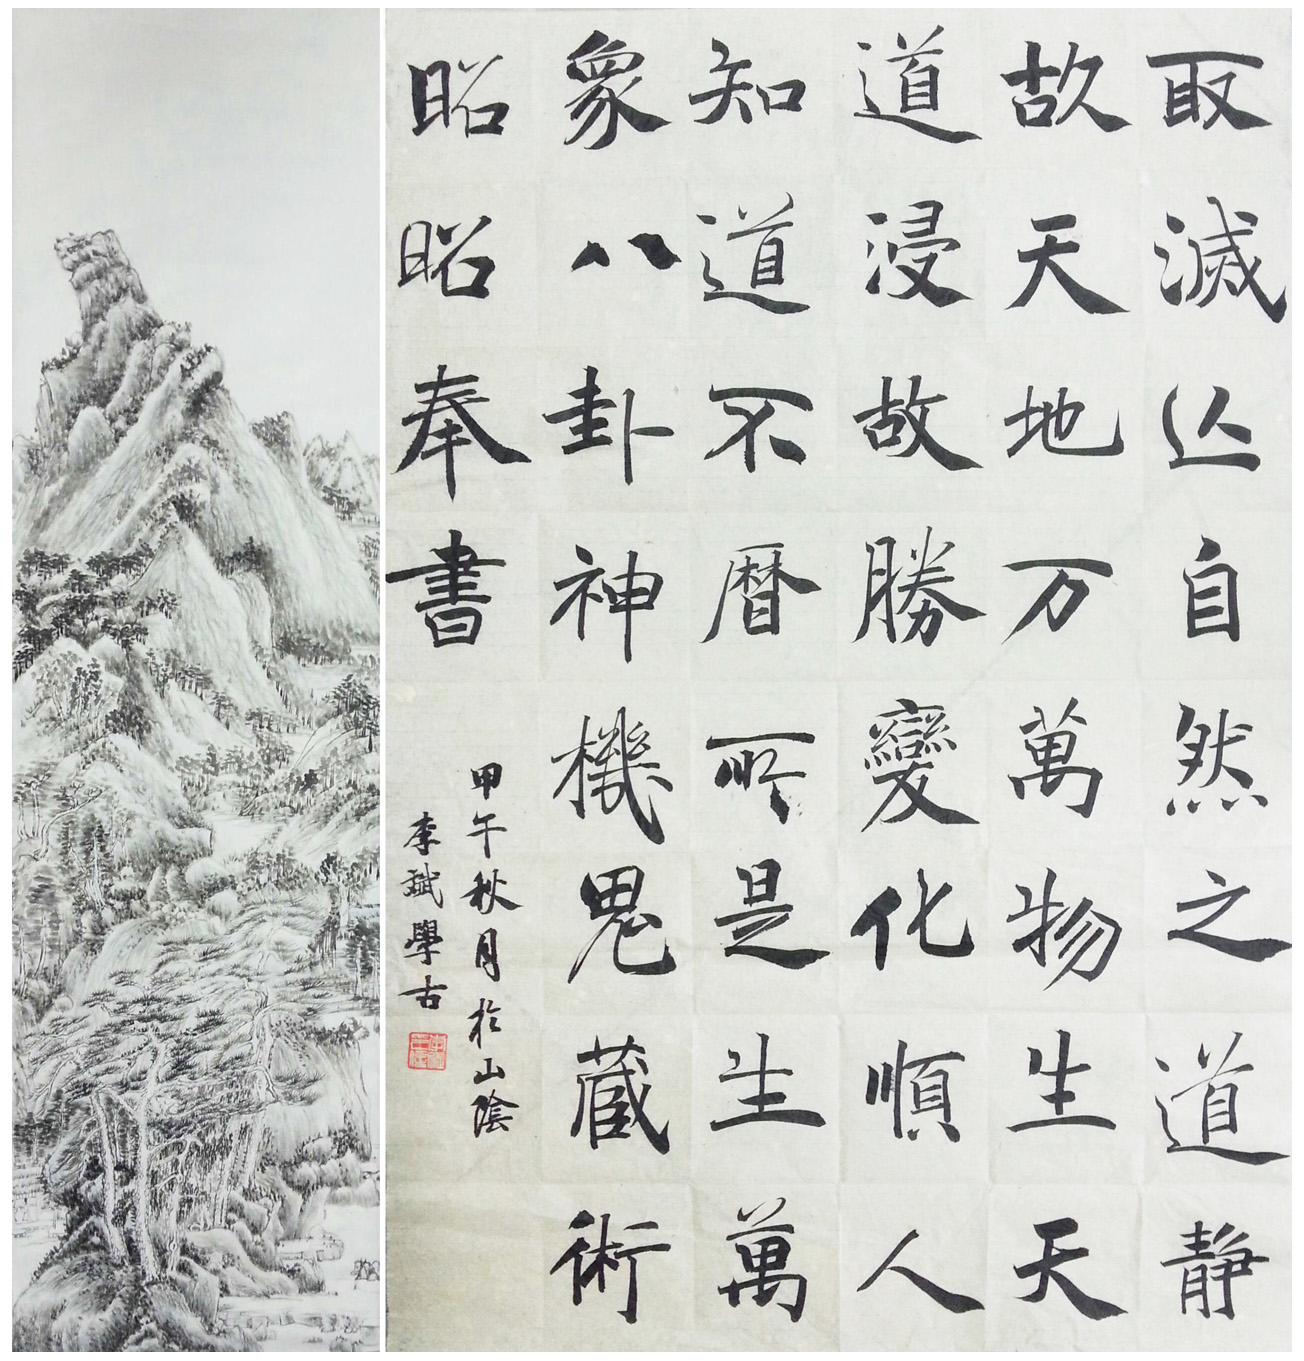 取滅亾自然之道静
故天地万萬物生天
道浸故勝變化順人
知道不暦所是生萬
象八卦神機鬼蔵術
昭昭奉書
甲午秋月於山陰
李斌學古